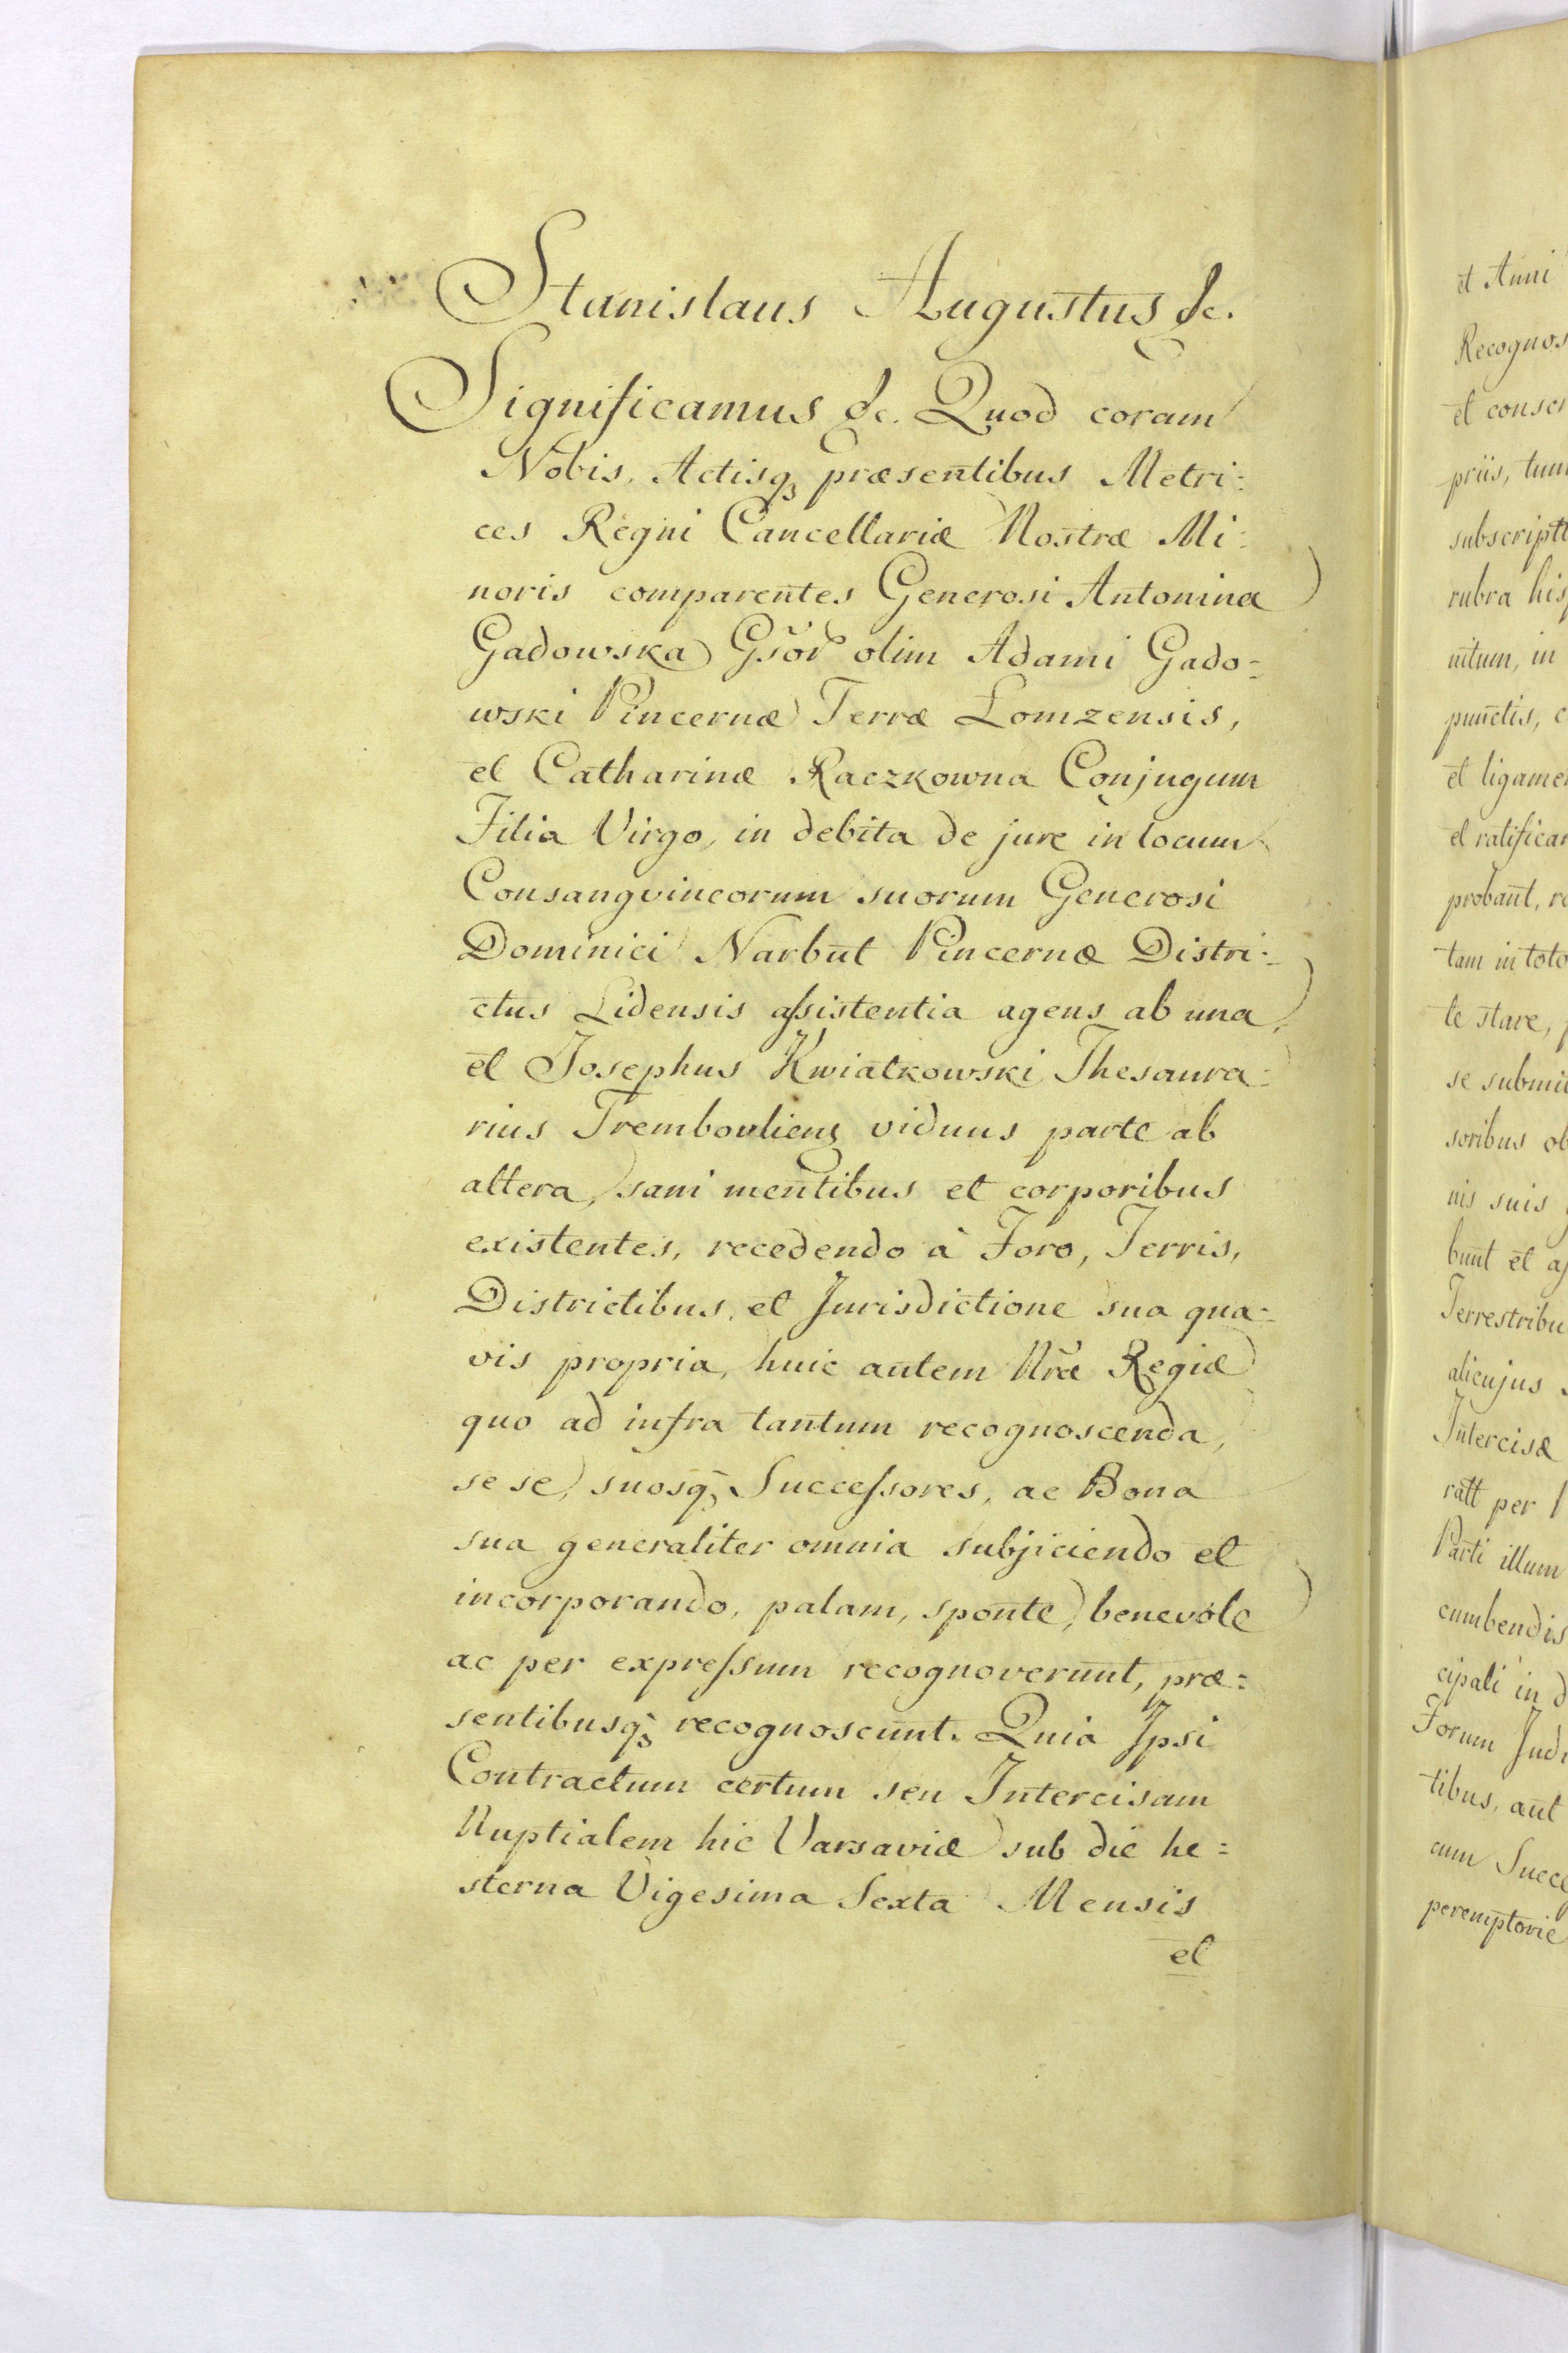 Stanislaus Augustus &c.
Significamus &c. Quod coram
Nobis, Actisq₃ præsentibus Metri:
ces Regni Cancellariæ Nostræ Mi:
noris comparentes Generosi Antonina
Gadowska Gsor̃ olim Adami Gado=
wski Pincernæ Terræ Lomzensis,
et Catharinæ Raczkowna Conjugum
Filia Virgo, in debita de jure in locum
Consangvineorum suorum Generosi
Dominici Narbut Pincernæ Distri:
ctus Lidensis assistentia agens ab una,
et Josephus Kwiatkowski Thesaura:
rius Trembouliens viduus parte ab
altera, sani mentibus et corporibus
existentes, recedendo à Foro, Terris,
Districtibus, et Jurisdictione sua qua=
vis propria, huic autem Nræ Regiæ
quo ad infra tantum recognoscenda,
se se, suosq₃ Successores, ac Bona
sua generaliter omnia subjiciendo et
incorporando, palam, sponte, benevole
ac per expressum recognoverunt, præ=
sentibusq₃ recognoscunt. Quia Ipsi
Contractum certum seu Intercisam
Nuptialem hic Varsaviæ sub die he=
sterna Vigesima Sexta Mensis
et
et Anni
Recognos
et conscr
priis, tum
subscript
rubra his
nitum, in
punctis, c
et ligame
et ratifica
probant, re
tam in toto
te stare,
se submi
soribus ob
nis suis
bunt et as
Terrestribu
alicujus
Intercisæ
ratt per
Parti illum
cumbendis
cipali in d
Forum Judi
tibus, aut
cum Succe
peremptorie